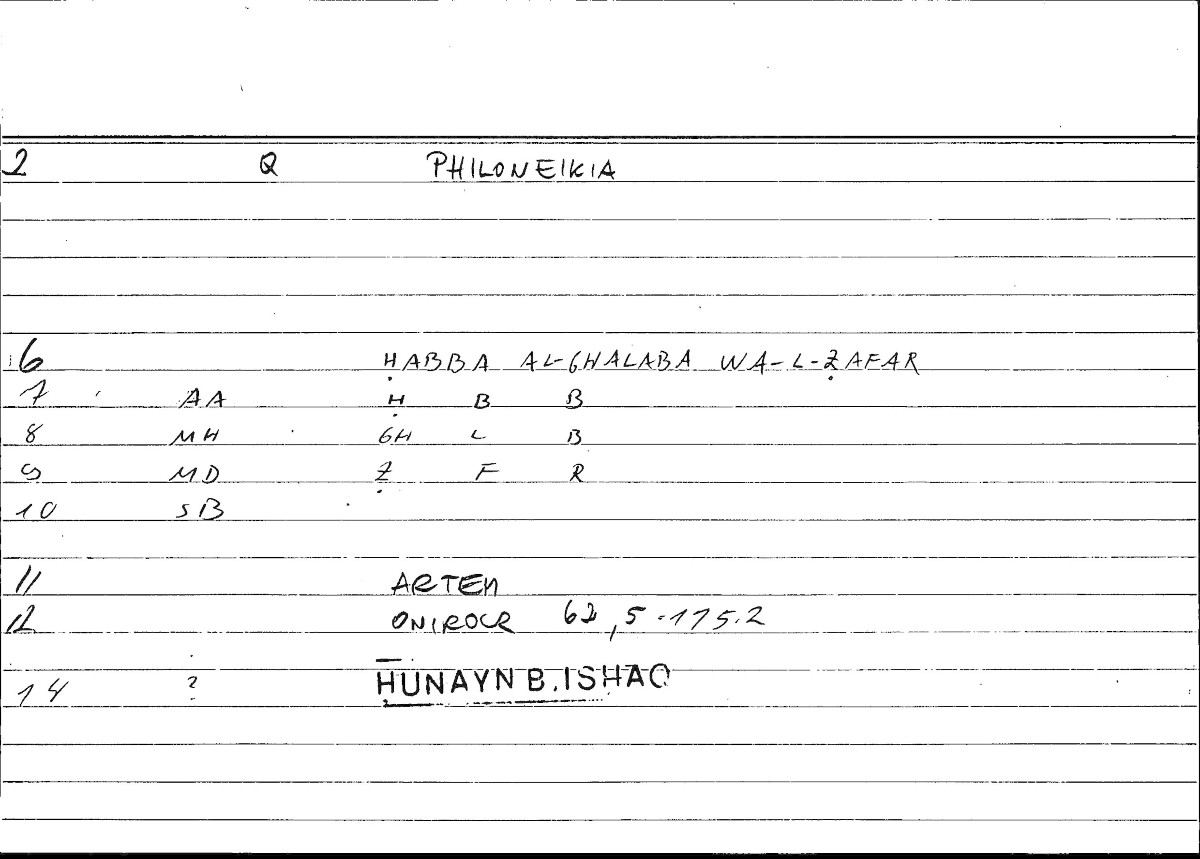 2 Q PHILONEIKIA
6 ḤABBA AL-GHALABA WA-L-ẒAFAR
7 AA Ḥ B B
8 MH GH L B
9 MD Ẓ F R
10 SB
11 ARTEM
12 ONIROCR 62,5-175.2
14 ? HUNAYN B. ISHAQ